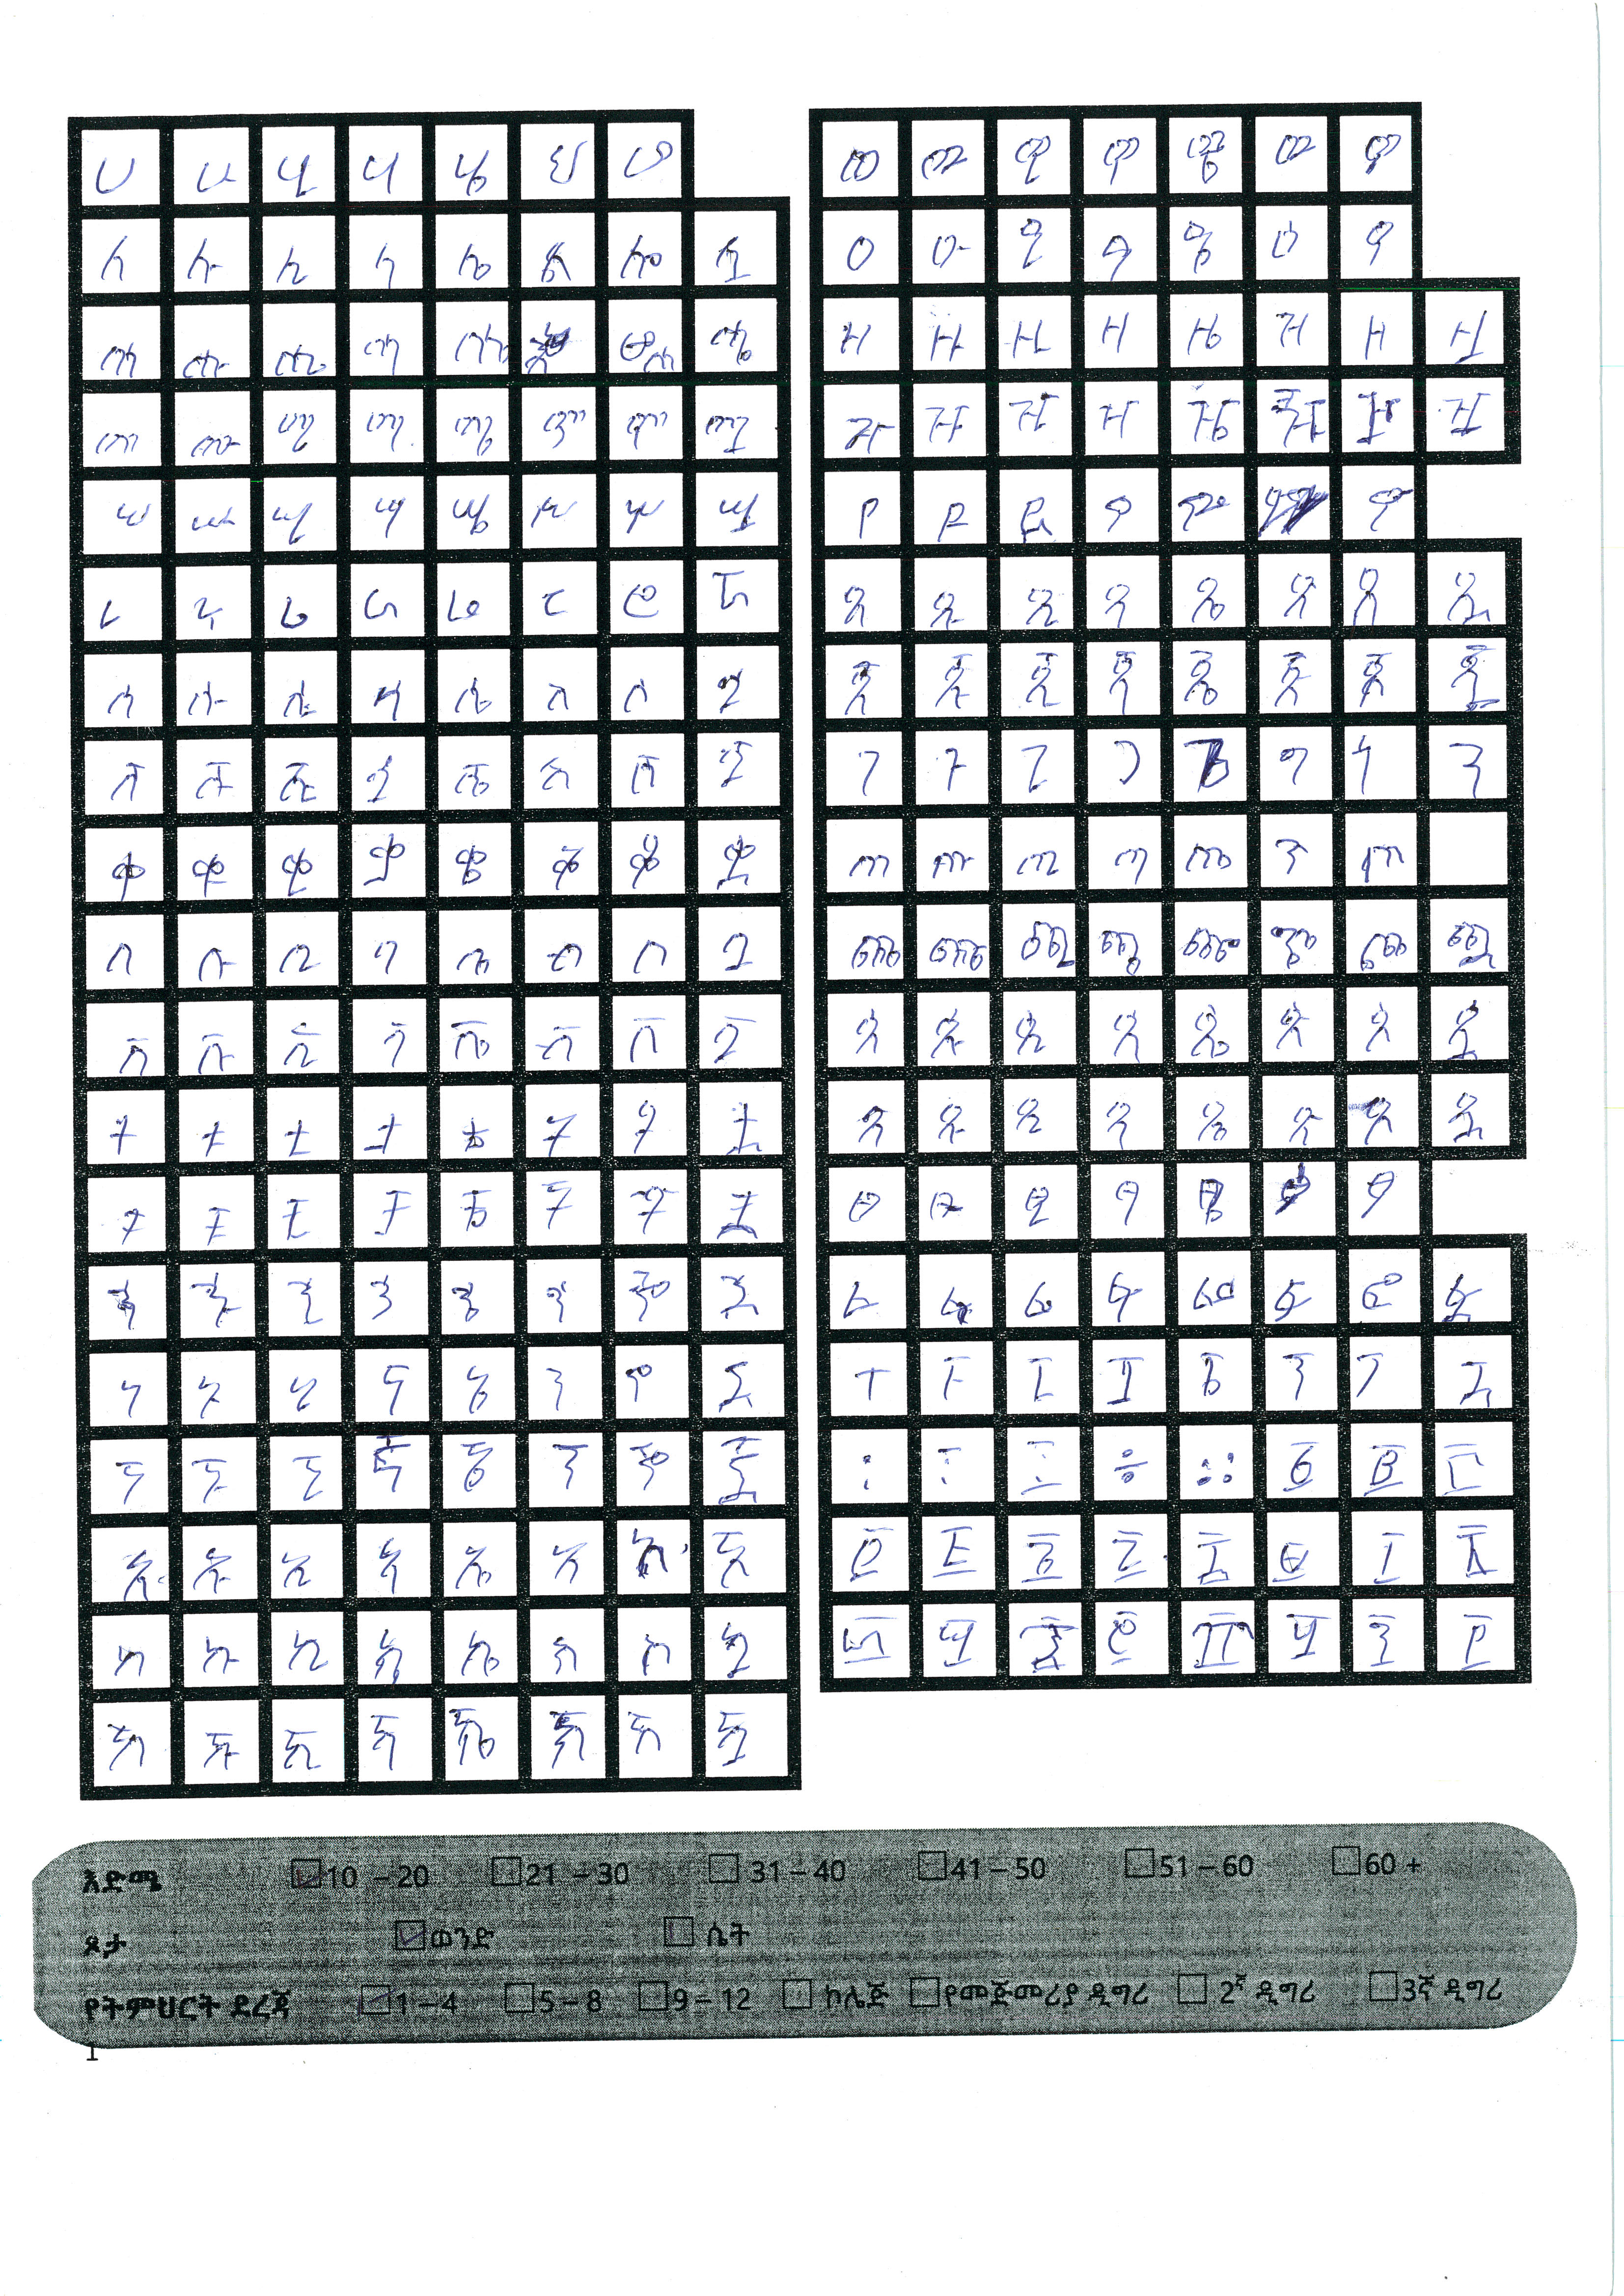 ሀ ሁ ሂ ሃ ሄ ህ ሆ
ለ ሉ ሊ ላ ሌ ል ሎ ሏ
ሐ ሑ ሒ ሓ ሔ ሗ
መ ሙ ሚ ማ ሜ ም ሞ ሟ
ሠ ሡ ሢ ሣ ሤ ሥ ሦ ሧ
ረ ሩ ሪ ራ ሬ ር ሮ ሯ
ሰ ሱ ሲ ሳ ሴ ስ ሶ ሷ
ሸ ሹ ሺ ሻ ሼ ሽ ሾ ሿ
ቀ ቁ ቂ ቃ ቄ ቅ ቆ ቋ
በ ቡ ቢ ባ ቤ ብ ቦ ቧ
ቨ ቩ ቪ ቫ ቬ ቭ ቮ ቯ
ተ ቱ ቲ ታ ቴ ት ቶ ቷ
ቸ ቹ ቺ ቻ ቼ ች ቾ ቿ
ኀ ኁ ኂ ኃ ኄ ኅ ኆ ኋ
ነ ኑ ኒ ና ኔ ን ኖ ኗ
ኘ ኙ ኚ ኛ ኜ ኝ ኞ ኟ
አ ኡ ኢ ኣ ኤ እ ኦ ኧ
ከ ኩ ኪ ካ ኬ ክ ኮ ኳ
ኸ ኹ ኺ ኻ ኼ ኽ ኾ ዃ
ወ ዉ ዊ ዋ ዌ ው ዎ
ዐ ዑ ዒ ዓ ዔ ዕ ዖ
ዘ ዙ ዚ ዛ ዜ ዝ ዞ ዟ
ዠ ዡ ዢ ዣ ዤ ዥ ዦ ዧ
የ ዩ ዪ ያ ዬ ዮ
ደ ዱ ዲ ዳ ዴ ድ ዶ ዷ
ጀ ጁ ጂ ጃ ጄ ጅ ጆ ጇ
ገ ጉ ጊ ጋ ጌ ግ ጎ ጓ
ጠ ጡ ጢ ጣ ጤ ጥ ጦ
ጨ ጩ ጪ ጫ ጬ ጭ ጮ ጯ
ጰ ጱ ጲ ጳ ጴ ጵ ጶ ጷ
ጸ ጹ ጺ ጻ ጼ ጽ ጾ ጿ
ፀ ፁ ፂ ፃ ፄ ፅ ፆ
ፈ ፉ ፊ ፋ ፌ ፍ ፎ ፏ
ፐ ፑ ፒ ፓ ፔ ፕ ፖ ፗ
፡ ፣ ፤ ÷ ። ፩ ፪ ፫
፬ ፭ ፮ ፯ ፰ ፱ ፲ ፳
፴ ፵ ፶ ፷ ፸ ፹ ፺ ፻
እድሜ 10 – 20 21 – 30 31 – 40 41 – 50 51 – 60 60 +
ጾታ ወንድ ሴት
የትምህርት ደረጃ 1 – 4 5 – 8 9 – 12 ኮሌጅ የመጀመሪያ ዲግሪ 2ኛ ዲግሪ 3ኛ ዲግሪ
1